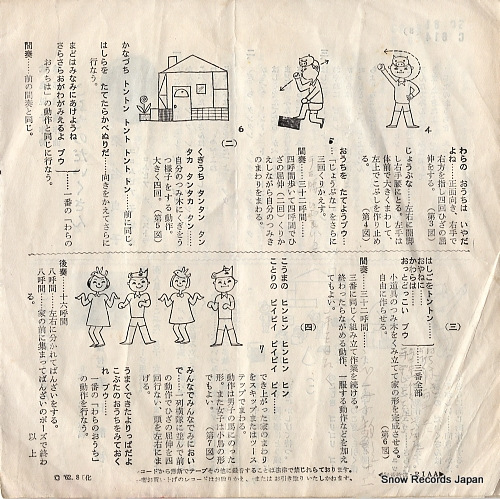 4
わらの おうちは いやだ
よね……正面向き、右手で
右方を指し四回ひざの屈
伸をする。 (第3図)
じょうぶな……左右に開脚
し右手腰にとる。左手は
体前で大きくまわして、
左上でこぶしを作り止め
る。 (第4図)
おうちを たてようブウ
……「じょうぶな」をさらに
三回くりかえす。
間奏……三十二呼間。
四呼間歩いて四呼間でひ
ざの屈伸を(二回)くりか
えしながら自分のつみき
のまわりをまわる。
5
6
(二)
くぎうち タンタン タン
タカ タンタカ タン
……自分のつみ木にくぎをう
つ様子をする動作。
大きく四回。 (第5図)
かなづち トントン トント トント トン……前に同じ。
はしらを たてたらかべぬりだ……向きをかえてさらに
行なう。
まどはみなみにあけようね
さらさらおがわがみえるよ ブウ……一番の「わらの
おうちは」の動作と同じに行なう。
間奏……前の間奏と同じ。
(三)
はしごをトントン
おやねに
かわらは
おっとどっこい ブウ
……三番全部
小道具のつみ木をくみ立てて家の形を完成させる。
自由に作らせる。 (第6図)
間奏……三十二呼間。
三番に同じく組み立て作業を続ける。
終わったらながめる動作、一服する動作などを加え
てもよい。
(四)
こうまの ヒンヒン ヒンヒン ヒン
ことりの ピイピイ ピイピイ ピイ……
でき上がった家のまわり
をスキップまたはツース
テップでまわる。
動作は男子の馬にのった
形。また女子は小鳥の形
でもよい。 (第7図)
7
みんなでみんなでみにおい
で……一列横隊に並んで前
の動作でひざの屈伸を四
回行ない、頭を左右にま
げる。
うまくできたよりっぱだよ
こぶたのおうちをみておく
れ ブウ
……一番の「わらのおうち」
の動作を行なう。
後奏……十六呼間
八呼間……左右に分かれてばんざいをする。
八呼間……家の前に集まってばんざいのポーズで終わ
る。
以上
© '62. 8 (化
コードから無断でテープその他に録音することは法律で禁じられております。
Snow Records Japan